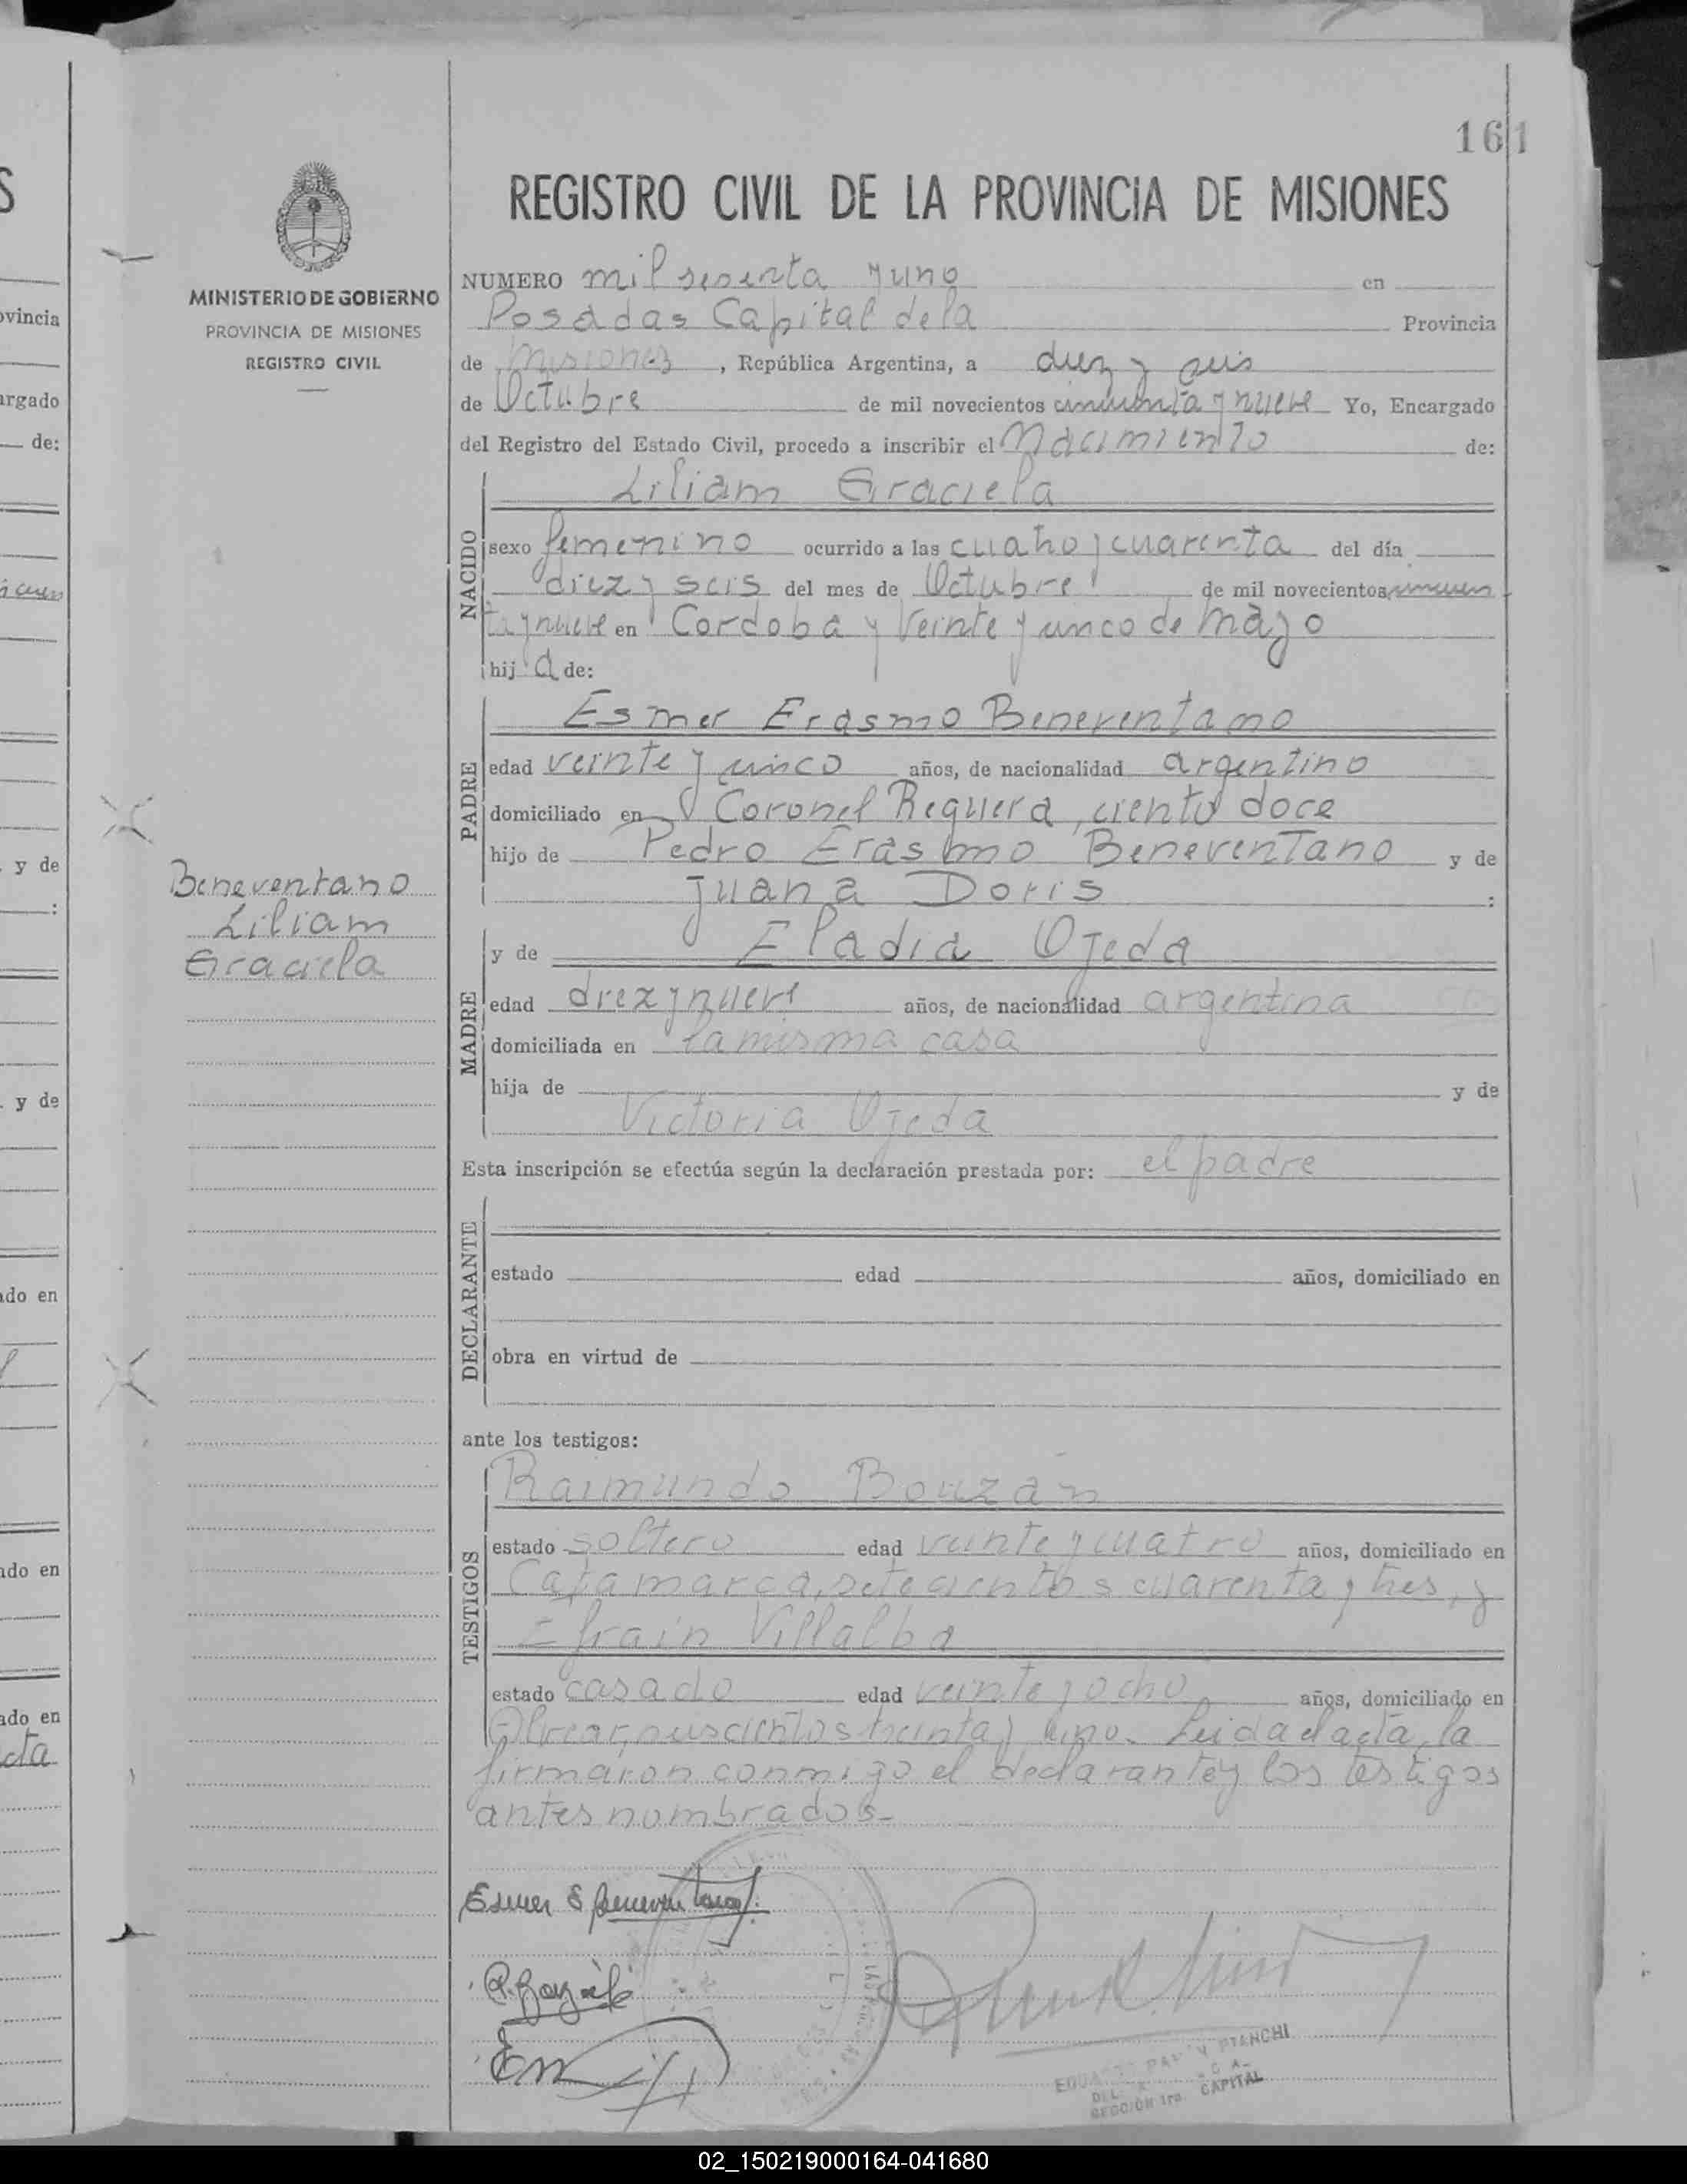 161
REGISTRO CIVIL DE LA PROVINCIA DE MISIONES
MINISTERIO DE GOBIERNO
PROVINCIA DE MISIONES
REGISTRO CIVIL
NUMERO mil sesenta y uno en
Posadas Capital de la Provincia
de Misiones, República Argentina, a diez y seis
de Octubre de mil novecientos cincuenta y nueve Yo, Encargado
del Registro del Estado Civil, procedo a inscribir el Nacimiento de:
NACIDO
Liliam Graciela
sexo femenino ocurrido a las cuatro y cuarenta del día
diez y seis del mes de Octubre de mil novecientos cincuen
ta y nueve en Cordoba y Veinte y cinco de Mayo
hija de:
PADRE
Esmer Erasmo Beneventano
edad veinte y cinco años, de nacionalidad argentino
domiciliado en Coronel Reguera, ciento doce
hijo de Pedro Erasmo Beneventano y de
Juana Doris :
Beneventano
Liliam
Graciela
MADRE
y de Eladia Ojeda
edad diez y nueve años, de nacionalidad argentina
domiciliada en la misma casa
hija de y de
Victoria Ojeda
Esta inscripción se efectúa según la declaración prestada por: el padre
DECLARANTE
estado edad años, domiciliado en
obra en virtud de
ante los testigos:
TESTIGOS
Raimundo Bouzan
estado soltero edad veinte y cuatro años, domiciliado en
Catamarca, setecientos cuarenta y tres, y
Efrain Villalba
estado casado edad veinte y ocho años, domiciliado en
Alvear, treinta y uno. Leida el acta, la
firmaron conmigo el declarante y los testigos
antes nombrados.
Esmer E Beneventano
BIANCHI
SECCION 1ra. CAPITAL
vincia
argado
de:
y de
:
y de
ado en
ado en
ado en
02_150219000164-041680